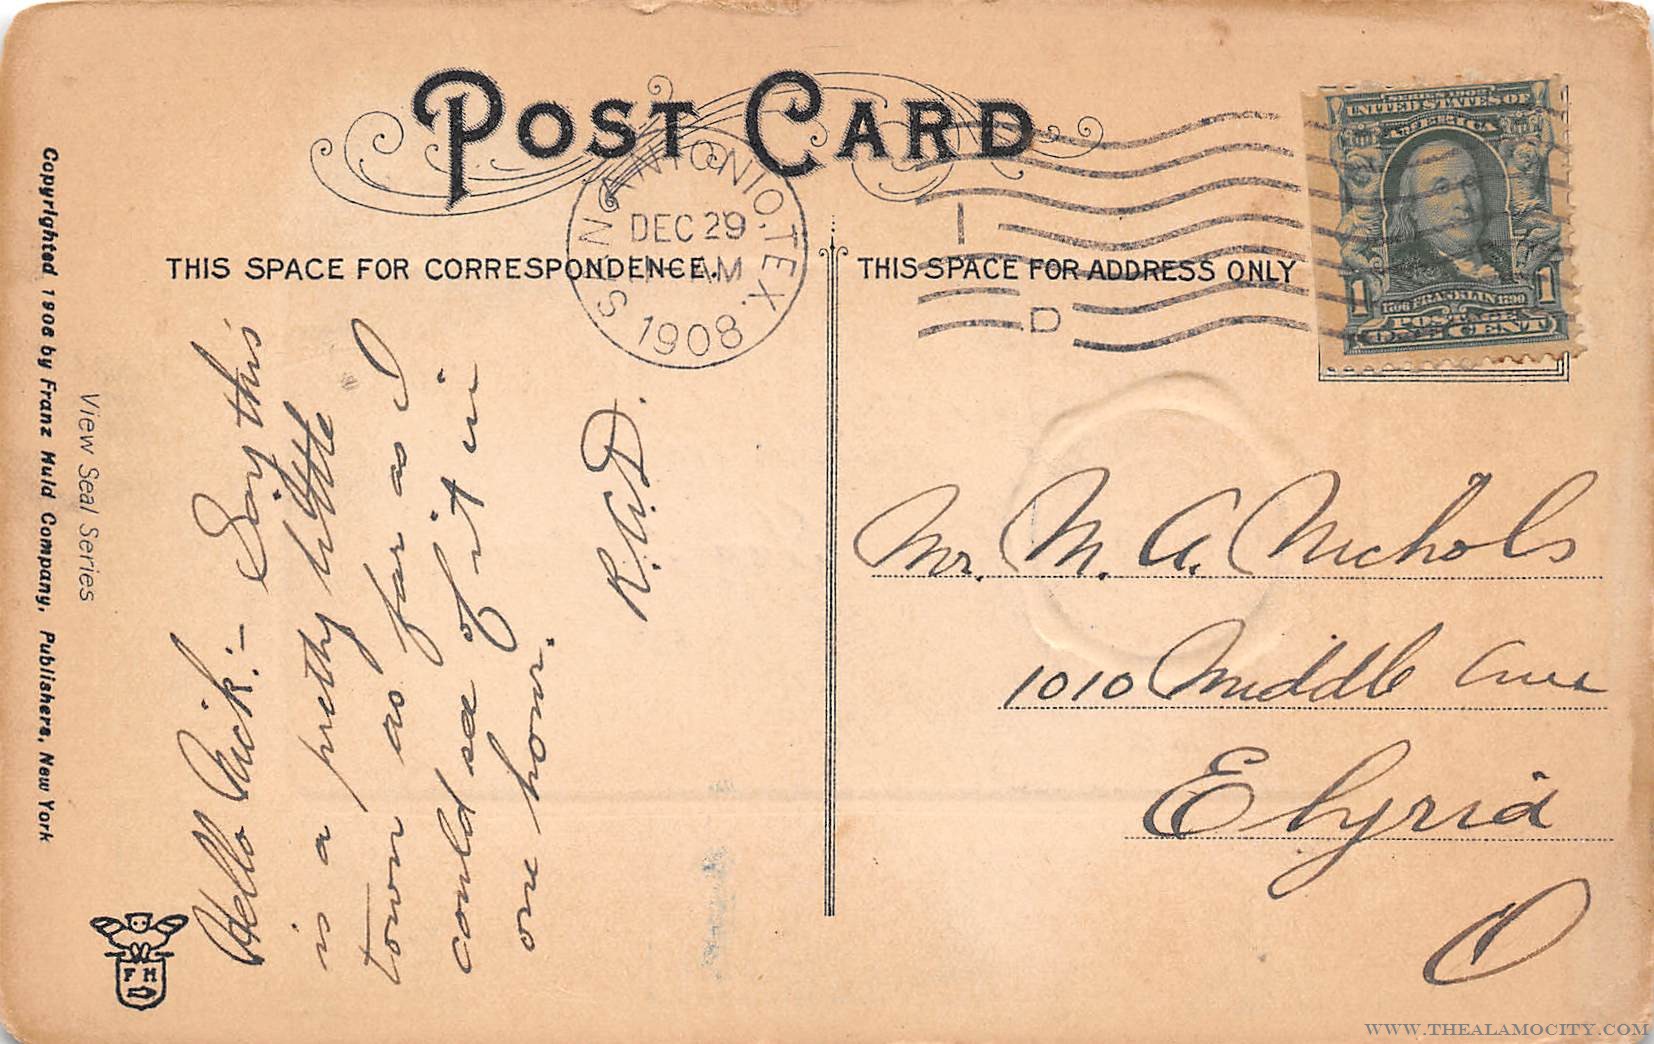 POST CARD
SAN ANTONIO, TEX.
DEC 29
AM
1908
1
D
THIS SPACE FOR CORRESPONDENCE.
THIS SPACE FOR ADDRESS ONLY
SERIES 1902
UNITED STATES OF
AMERICA
1706 FRANKLIN 1790
1 1
POSTAGE
ONE CENT
Copyrighted 1908 by Franz Huld Company, Publishers, New York
View Seal Series
F H
Hello Nick:- Say this
is a pretty little
town as far as I
could see of it in
one hour.
R.W.D.
Mr. M. A. Nichols
1010 Middle Ave
Elyria
O
WWW.THEALAMOCITY.COM